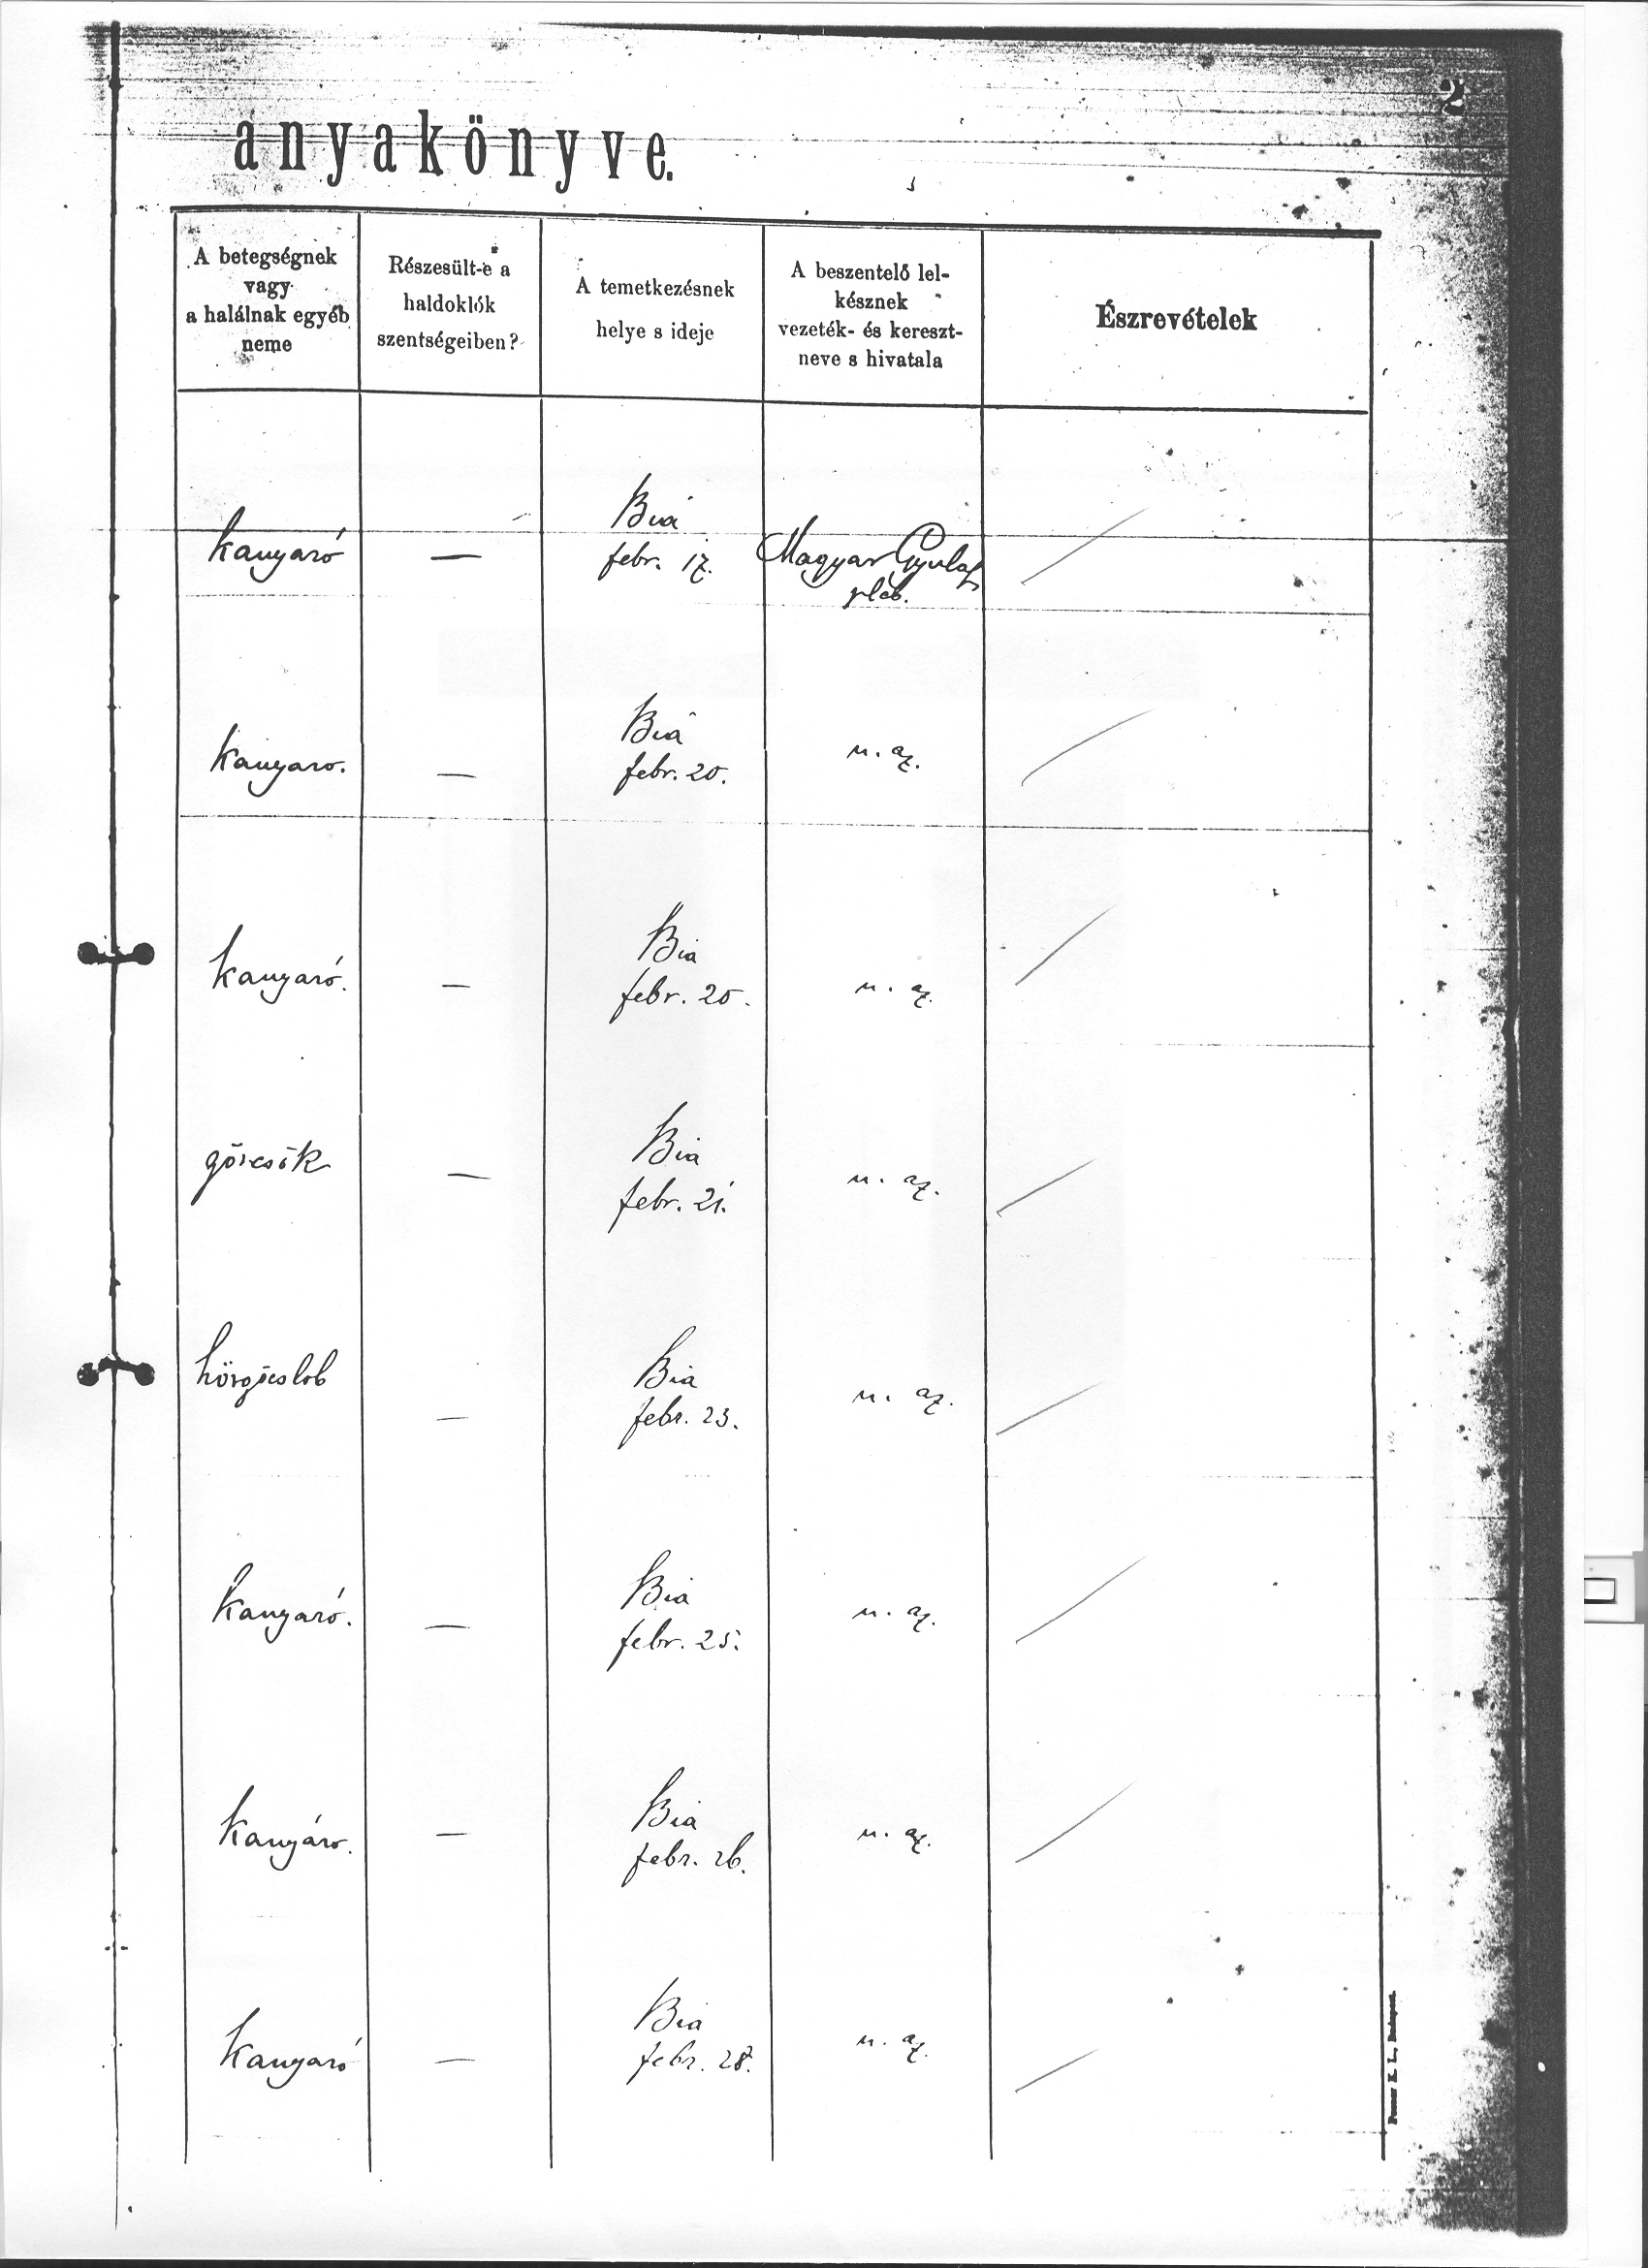 2
anyakönyve.
A betegségnek
vagy
a halálnak egyéb
neme
Részesült-e a
haldoklók
szentségeiben?
A temetkezésnek
helye s ideje
A beszentelő lel-
késznek
vezeték- és kereszt-
neve s hivatala
Észrevételek
kanyaró — Bia
febr. 17. Magyar Gyula
pleb.
kanyaro. — Bia
febr. 20. u. az.
kanyaró. — Bia
febr. 20. u. az.
görcsök — Bia
febr. 21. u. az.
hörgőcslob — Bia
febr. 23. u. az.
kanyaró. — Bia
febr. 25. u. az.
kanyáro. — Bia
febr. 26. u. az.
kanyaró — Bia
febr. 28. u. az.
Posner K. L., Budapest.